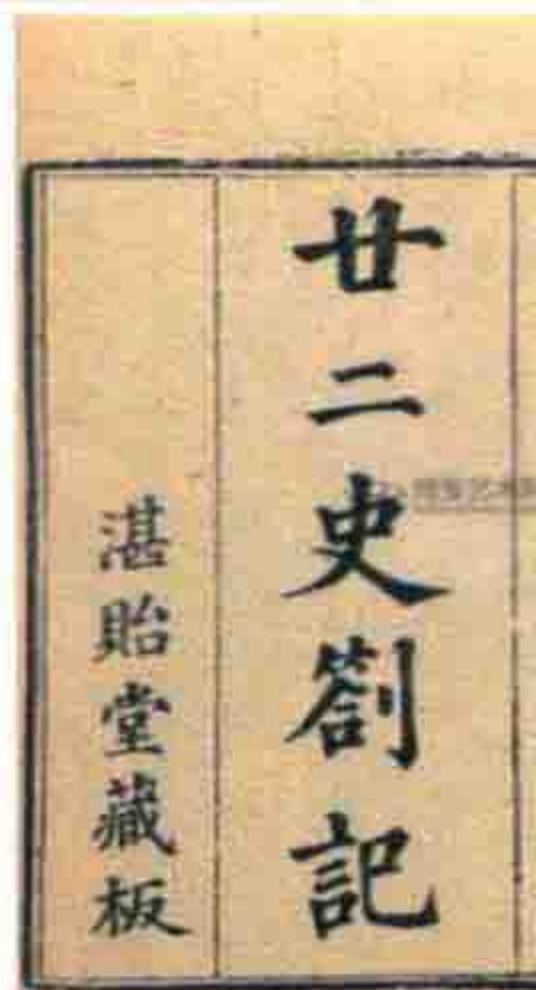 廿二史劄記
湛貽堂藏板